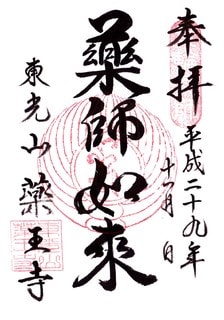 奉拝
平成二十九年
十一月 日
藥師如來
東光山 薬王寺